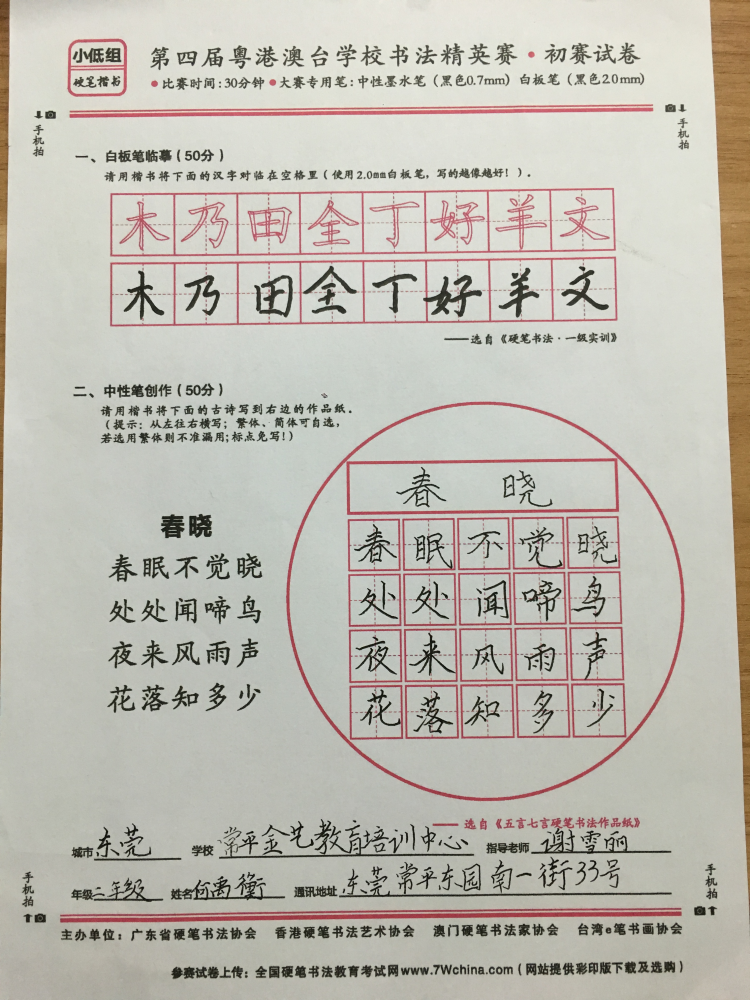 小低组
硬笔楷书
第四届粤港澳台学校书法精英赛·初赛试卷
●比赛时间:30分钟 ●大赛专用笔:中性墨水笔(黑色0.7mm) 白板笔(黑色2.0mm)
手机拍
手机拍
一、白板笔临摹(50分)
请用楷书将下面的汉字对临在空格里(使用2.0mm白板笔,写的越像越好!)。
木乃田全丁好羊文
木乃田全丁好羊文
——选自《硬笔书法·一级实训》
二、中性笔创作(50分)
请用楷书将下面的古诗写到右边的作品纸。
(提示:从左往右横写;繁体、简体可自选,
若选用繁体则不准漏用;标点免写!)
春晓
春眠不觉晓
处处闻啼鸟
夜来风雨声
花落知多少
春 晓
春眠不觉晓
处处闻啼鸟
夜来风雨声
花落知多少
——选自《五言七言硬笔书法作品纸》
城市 东莞 学校 常平金艺教育培训中心 指导老师 谢雪丽
年级 二年级 姓名 何禹衡 通讯地址 东莞常平东园南一街33号
手机拍
手机拍
主办单位:广东省硬笔书法协会 香港硬笔书法艺术协会 澳门硬笔书法家协会 台湾e笔书画协会
参赛试卷上传:全国硬笔书法教育考试网www.7Wchina.com(网站提供彩印版下载及选购)